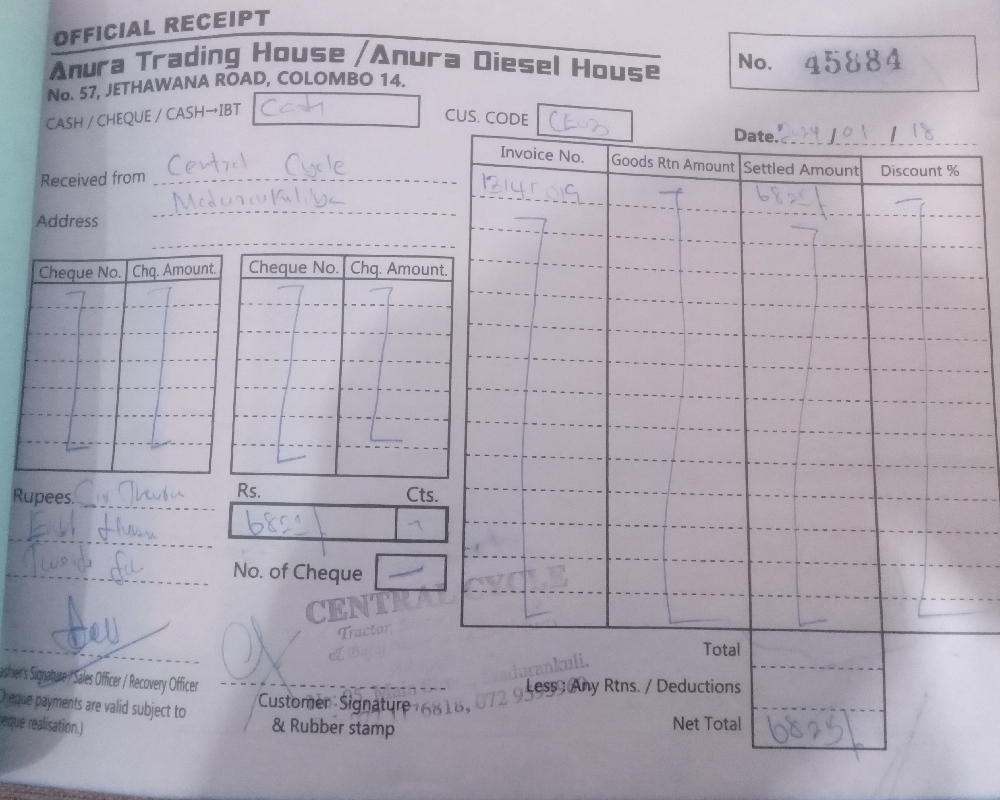 OFFICIAL RECEIPT
Anura Trading House / Anura Diesel House
No. 57, JETHAWANA ROAD, COLOMBO 14.
No. 45884
CASH / CHEQUE / CASH→IBT Cash
CUS. CODE
Date. 2024 / 01 / 18
Received from Central Cycle
Address
Invoice No. Goods Rtn Amount Settled Amount Discount %
6825/
Cheque No. Chq. Amount. Cheque No. Chq. Amount.
Rupees. Six Thousand
Eight
Twenty
Rs. Cts.
6825/
No. of Cheque —
CENTRAL CYCLE
Tractor,
Sales Officer / Recovery Officer
payments are valid subject to
realisation.)
Customer Signature
& Rubber stamp
Total
Less: Any Rtns. / Deductions
Net Total 6825/